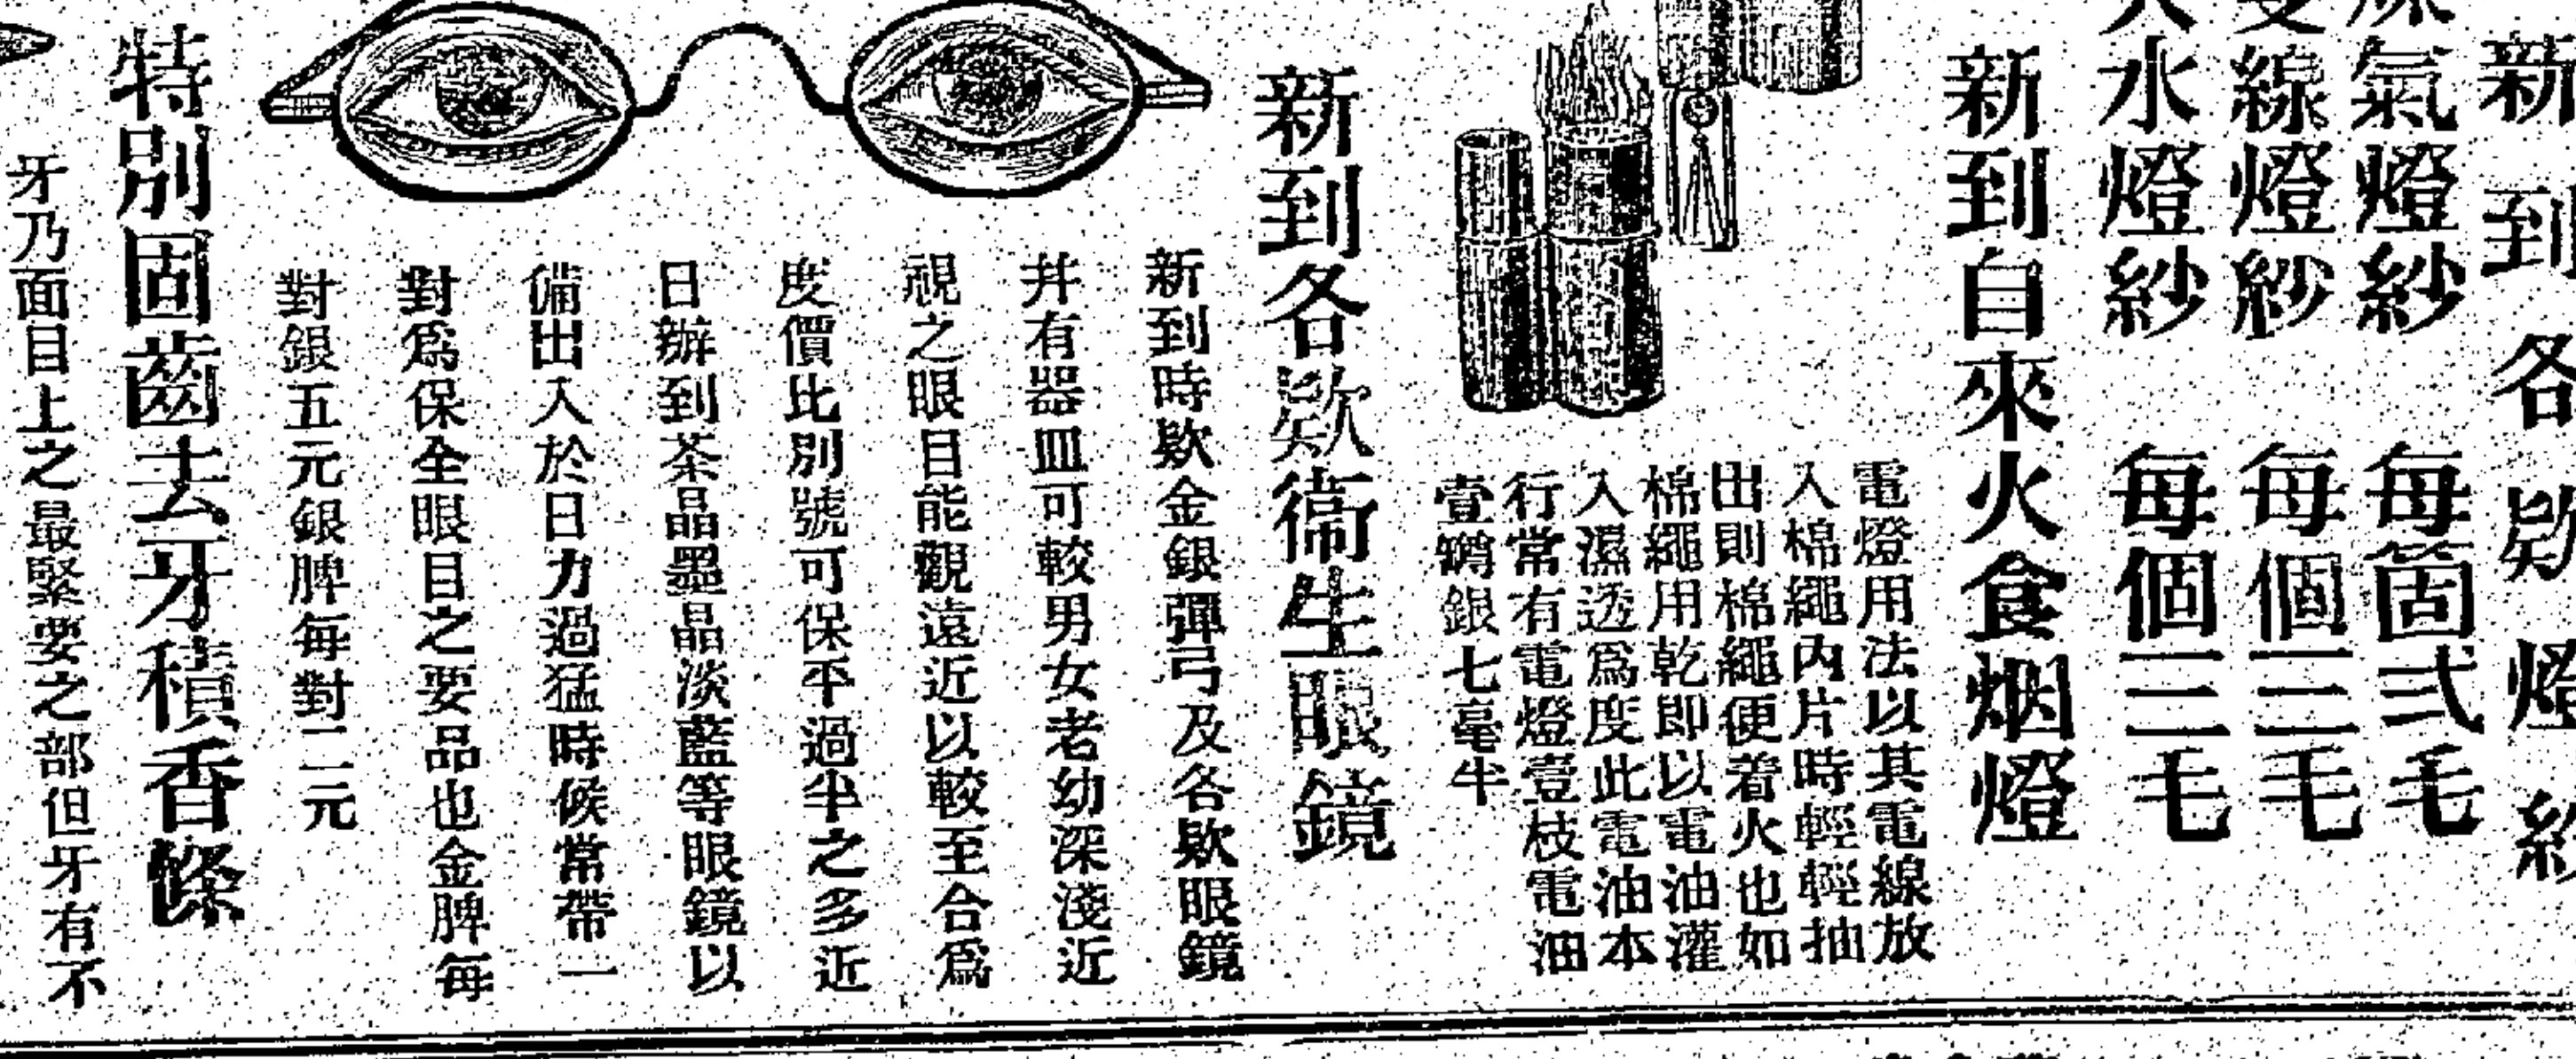 新到各欵燈紗
氣燈紗 每箇弍毛
線燈紗 每個三毛
火水燈紗 每個三毛
新到自來火食烟燈
電燈用法以其電線放
入棉繩內片時輕輕抽
出則棉繩便着火也如
棉繩用乾即以電油灌
入濕透爲度此電油本
行常有電燈壹枝電油
壹罇銀七毫半
新到各欵衞生眼鏡
新到時欵金銀彈弓及各欵眼鏡
并有器皿可較男女老幼深淺近
視之眼目能觀遠近以較至合爲
度價比別號可保平過半之多近
日辦到茶晶墨晶淡藍等眼鏡以
備出入於日力過猛時候常帶一
對爲保全眼目之要品也金脾每
對銀五元銀脾每對二元
特別固齒去牙積香條
牙乃面目上之最緊要之部但牙有不